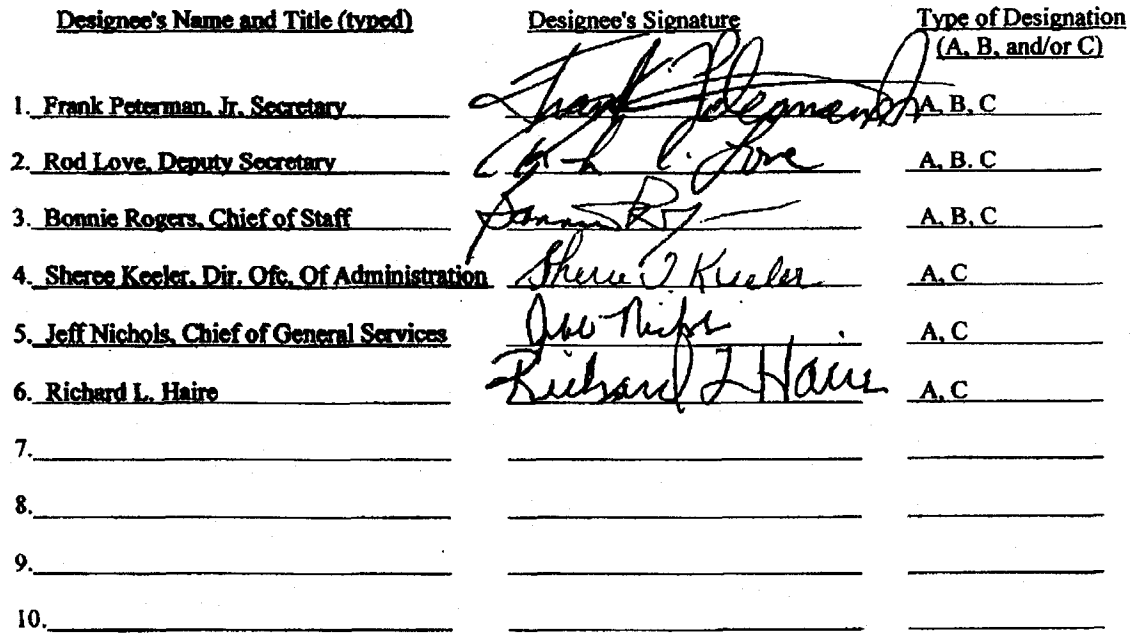 Designee's Name and Title (typed) Designee's Signature Type of Designation
(A, B, and/or C)
1. Frank Peterman, Jr. Secretary Frank Peterman Jr A, B, C
2. Rod Love, Deputy Secretary L. Love A, B. C
3. Bonnie Rogers, Chief of Staff A, B, C
4. Sheree Keeler, Dir. Ofc. Of Administration Sheree T Keeler A, C
5. Jeff Nichols, Chief of General Services A, C
6. Richard L. Haire Richard L Haire A, C
7.
8.
9.
10.